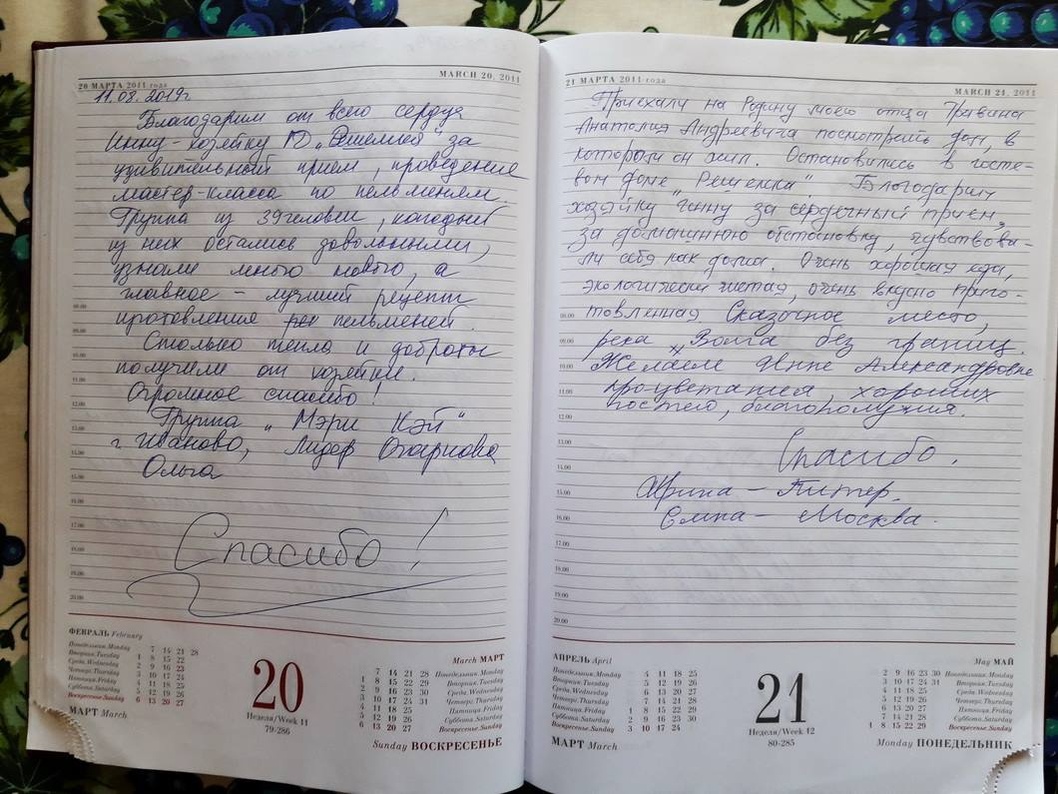 20 МАРТА 2011 года
MARCH 20, 2011
11.03.2019г
Благодарим от всего сердца
Инну - хозяйку
за
удивительный прием, проведение
мастер-класса по пельменям.
Группа из 39 человек, каждый
из них остались довольными,
узнали много нового, а
главное - лучший рецепт
приготовления рец пельменей.
Столько тепла и доброты
получили от хозяйки.
Огромное спасибо!
Группа "Мэри Кэй"
г Иваново, Лидер
Ольга
Спасибо!
08.00
09.00
10.00
11.00
12.00
13.00
14.00
15.00
16.00
17.00
18.00
19.00
20.00
ФЕВРАЛЬ February
Понедельник.Monday 7 14 21 28
Вторник.Tuesday 1 8 15 22
Среда.Wednesday 2 9 16 23
Четверг.Thursday 3 10 17 24
Пятница.Friday 4 11 18 25
Суббота.Saturday 5 12 19 26
Воскресенье.Sunday 6 13 20 27
МАРТ March
20
Неделя/Week 11
79-286
March МАРТ
7 14 21 28 Понедельник.Monday
1 8 15 22 29 Вторник.Tuesday
2 9 16 23 30 Среда.Wednesday
3 10 17 24 31 Четверг.Thursday
4 11 18 25 Пятница.Friday
5 12 19 26 Суббота.Saturday
6 13 20 27 Воскресенье.Sunday
Sunday ВОСКРЕСЕНЬЕ
21 МАРТА 2011 года
MARCH 21, 2011
Приехали на Родину моего отца
Анатолия Андреевича посмотреть дом, в
котором он жил. Остановились в госте-
вом доме "Решемка". Благодарим
хозяйку Инну за сердечный прием,
за домашнюю обстановку, чувствова-
ли себя как дома. Очень хорошая еда,
экологически чистая, очень вкусно приго-
товленная Сказочное место,
река Волга без границ.
Желаем Инне Александровне
процветания, хороших
гостей, благополучия.
Спасибо.
Ирина - Питер.
Елена - Москва.
08.00
09.00
10.00
11.00
12.00
13.00
14.00
15.00
16.00
17.00
18.00
19.00
20.00
АПРЕЛЬ April
Понедельник.Monday 4 11 18 25
Вторник.Tuesday 5 12 19 26
Среда.Wednesday 6 13 20 27
Четверг.Thursday 7 14 21 28
Пятница.Friday 1 8 15 22 29
Суббота.Saturday 2 9 16 23 30
Воскресенье.Sunday 3 10 17 24
МАРТ March
21
Неделя/Week 12
80-285
May МАЙ
2 9 16 23 30 Понедельник.Monday
3 10 17 24 31 Вторник.Tuesday
4 11 18 25 Среда.Wednesday
5 12 19 26 Четверг.Thursday
6 13 20 27 Пятница.Friday
7 14 21 28 Суббота.Saturday
1 8 15 22 29 Воскресенье.Sunday
Monday ПОНЕДЕЛЬНИК